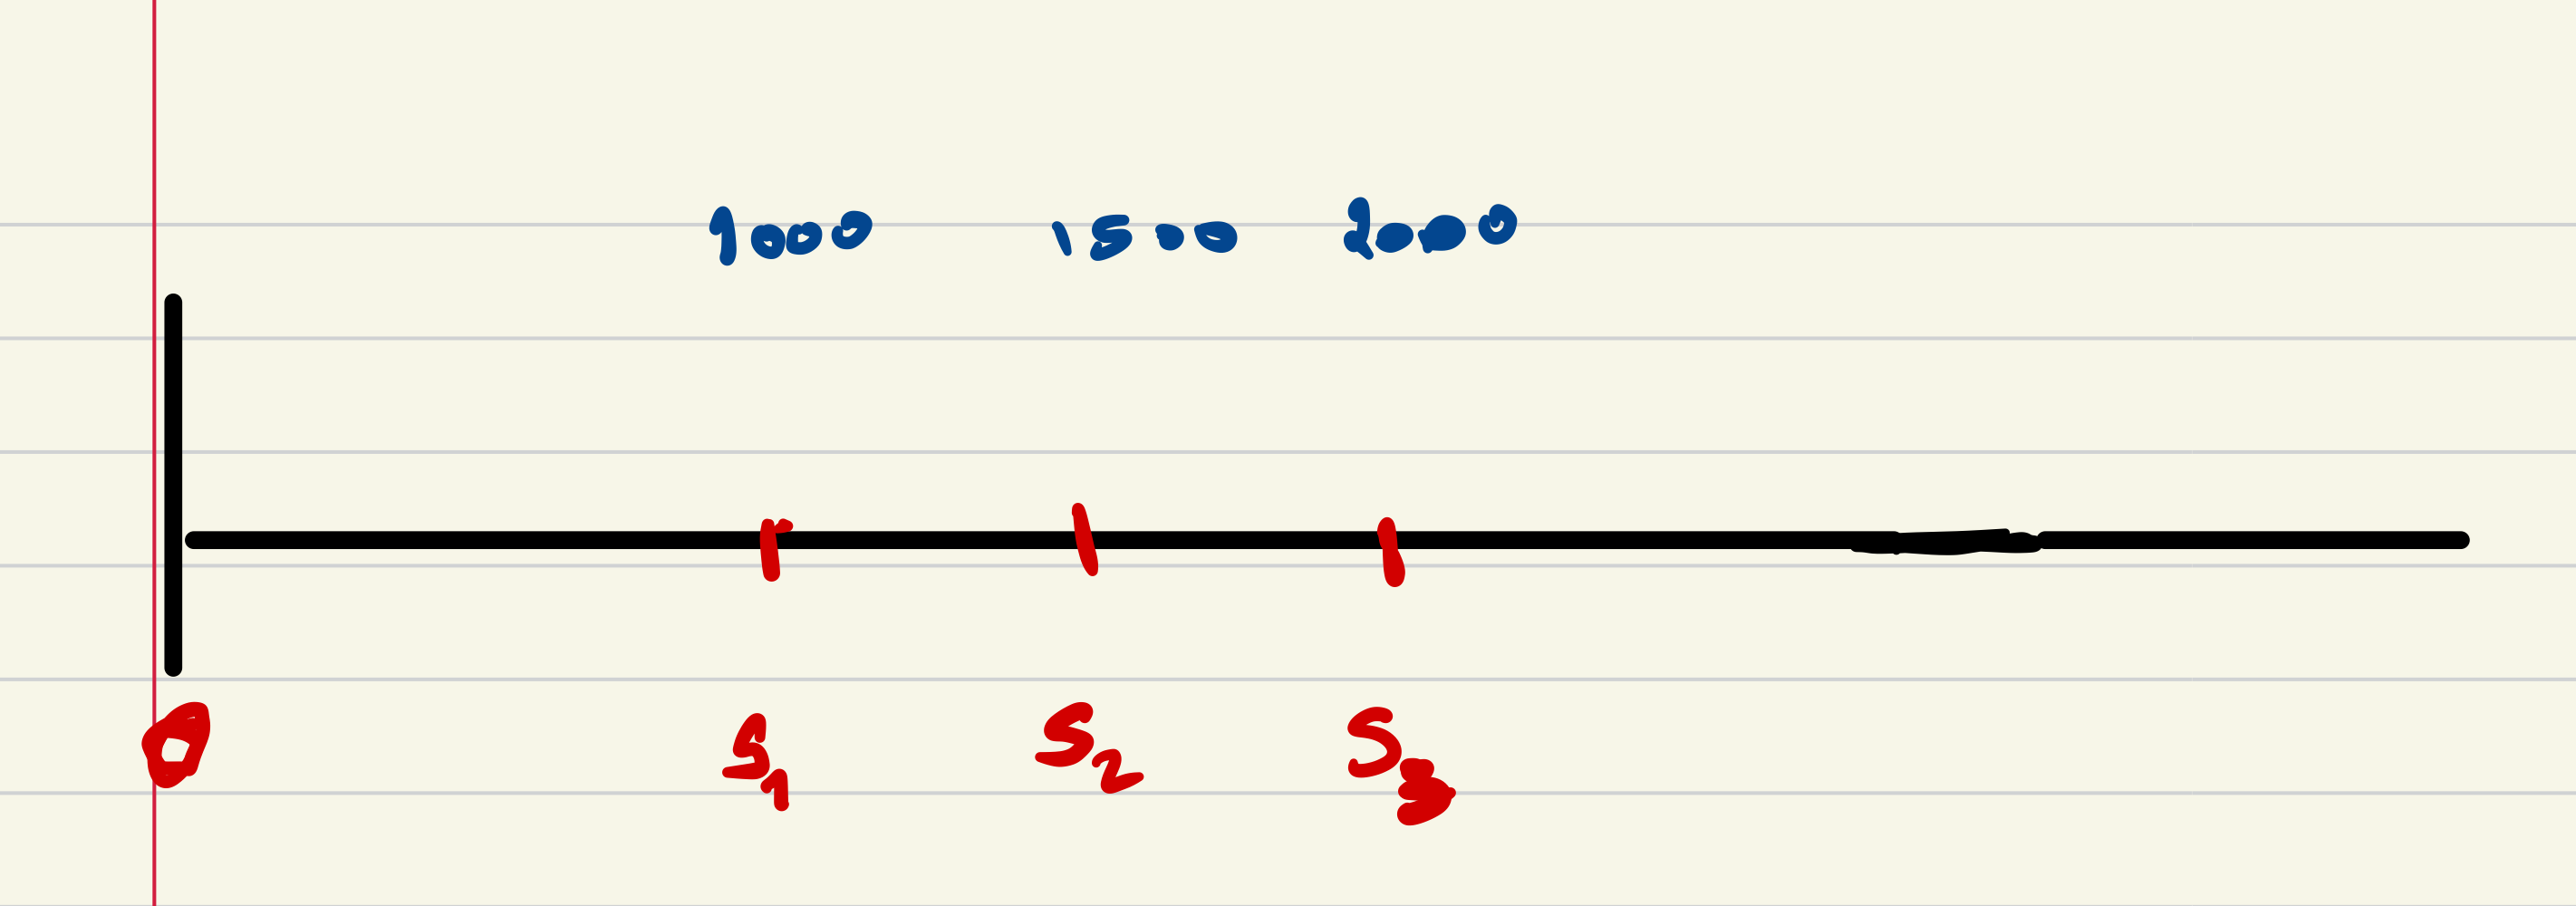 1000 1500 2000
0 S1 S2 S3